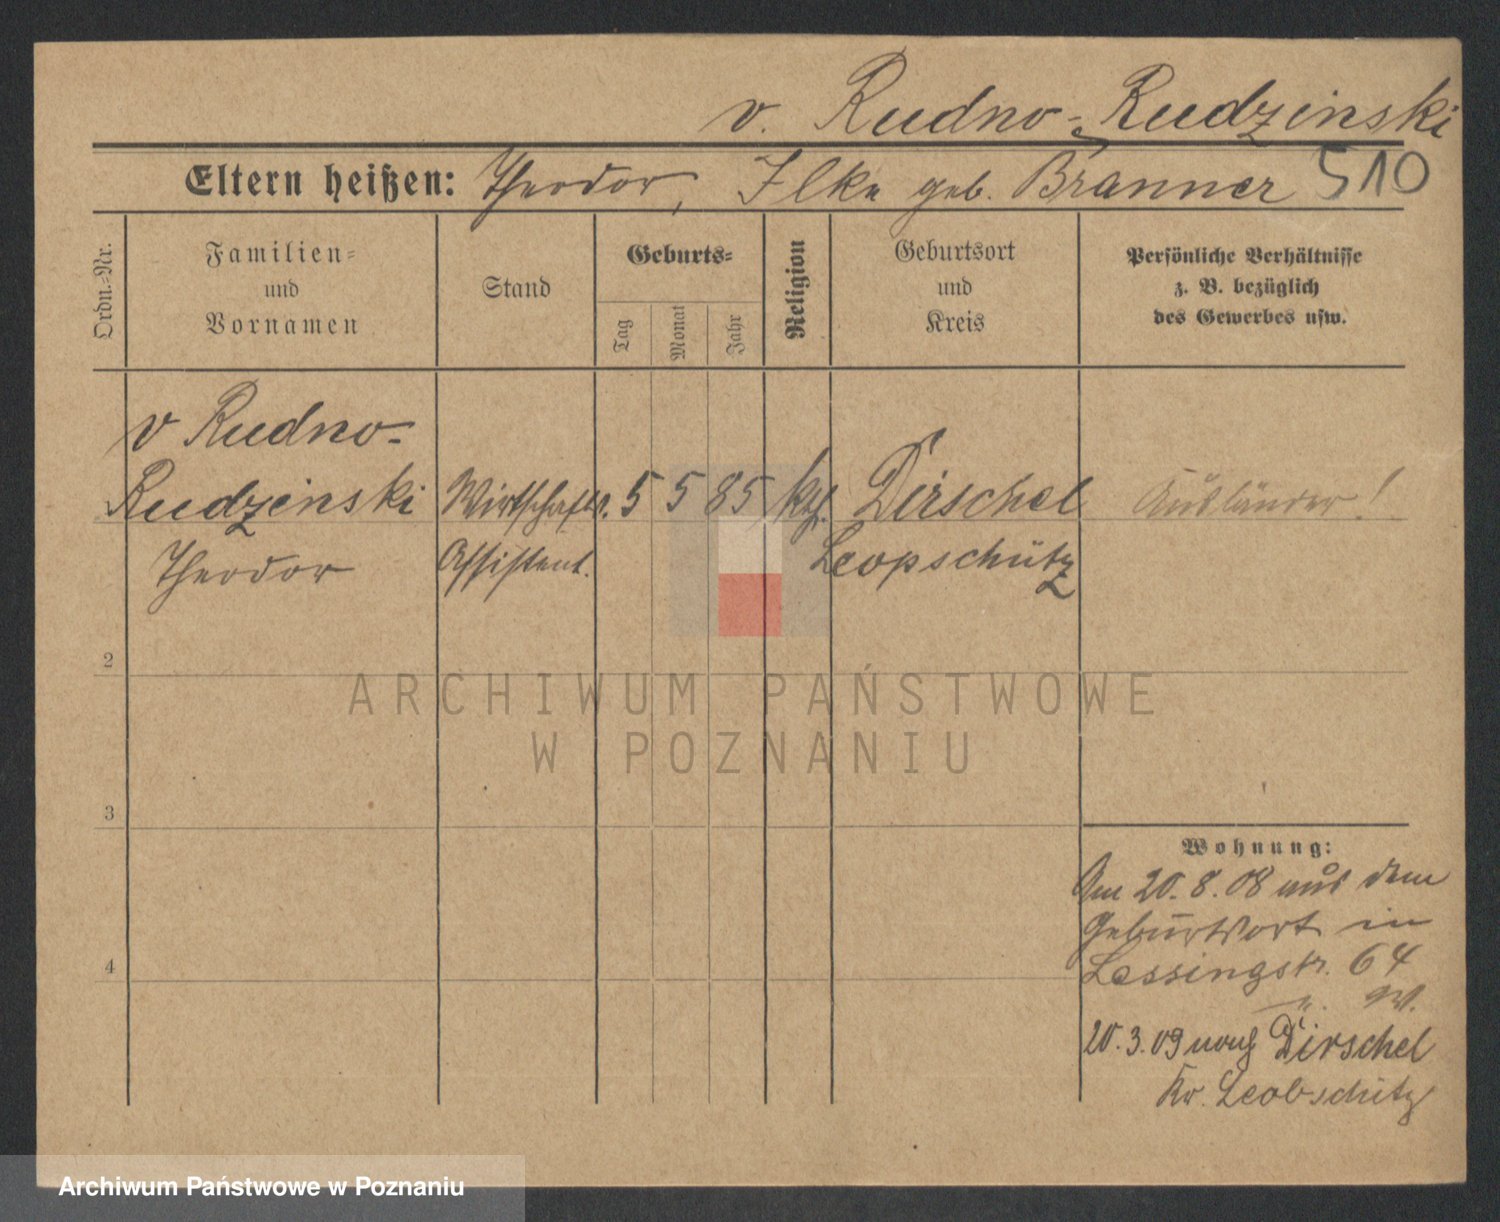 v. Rudno-Rudzinski
Eltern heißen: Theodor, Ilka geb. Branner 510
Ordn.-Nr.
Familien-
und
Vornamen
Stand
Geburts-
Tag
Monat
Jahr
Religion
Geburtsort
und
Kreis
Persönliche Verhältnisse
z. B. bezüglich
des Gewerbes usw.
v Rudno-
Rudzinski Wirtschafts. 5 5 85 kth. Dirschel Ausländer!
Theodor Assistent. Leopschütz
2
ARCHIWUM PAŃSTWOWE
W POZNANIU
3
Wohnung:
Am 20.8.08 aus dem
Geburtsort in
Lessingstr. 64
20.3.09 nach Dirschel
Kr. Leobschütz
4
Archiwum Państwowe w Poznaniu